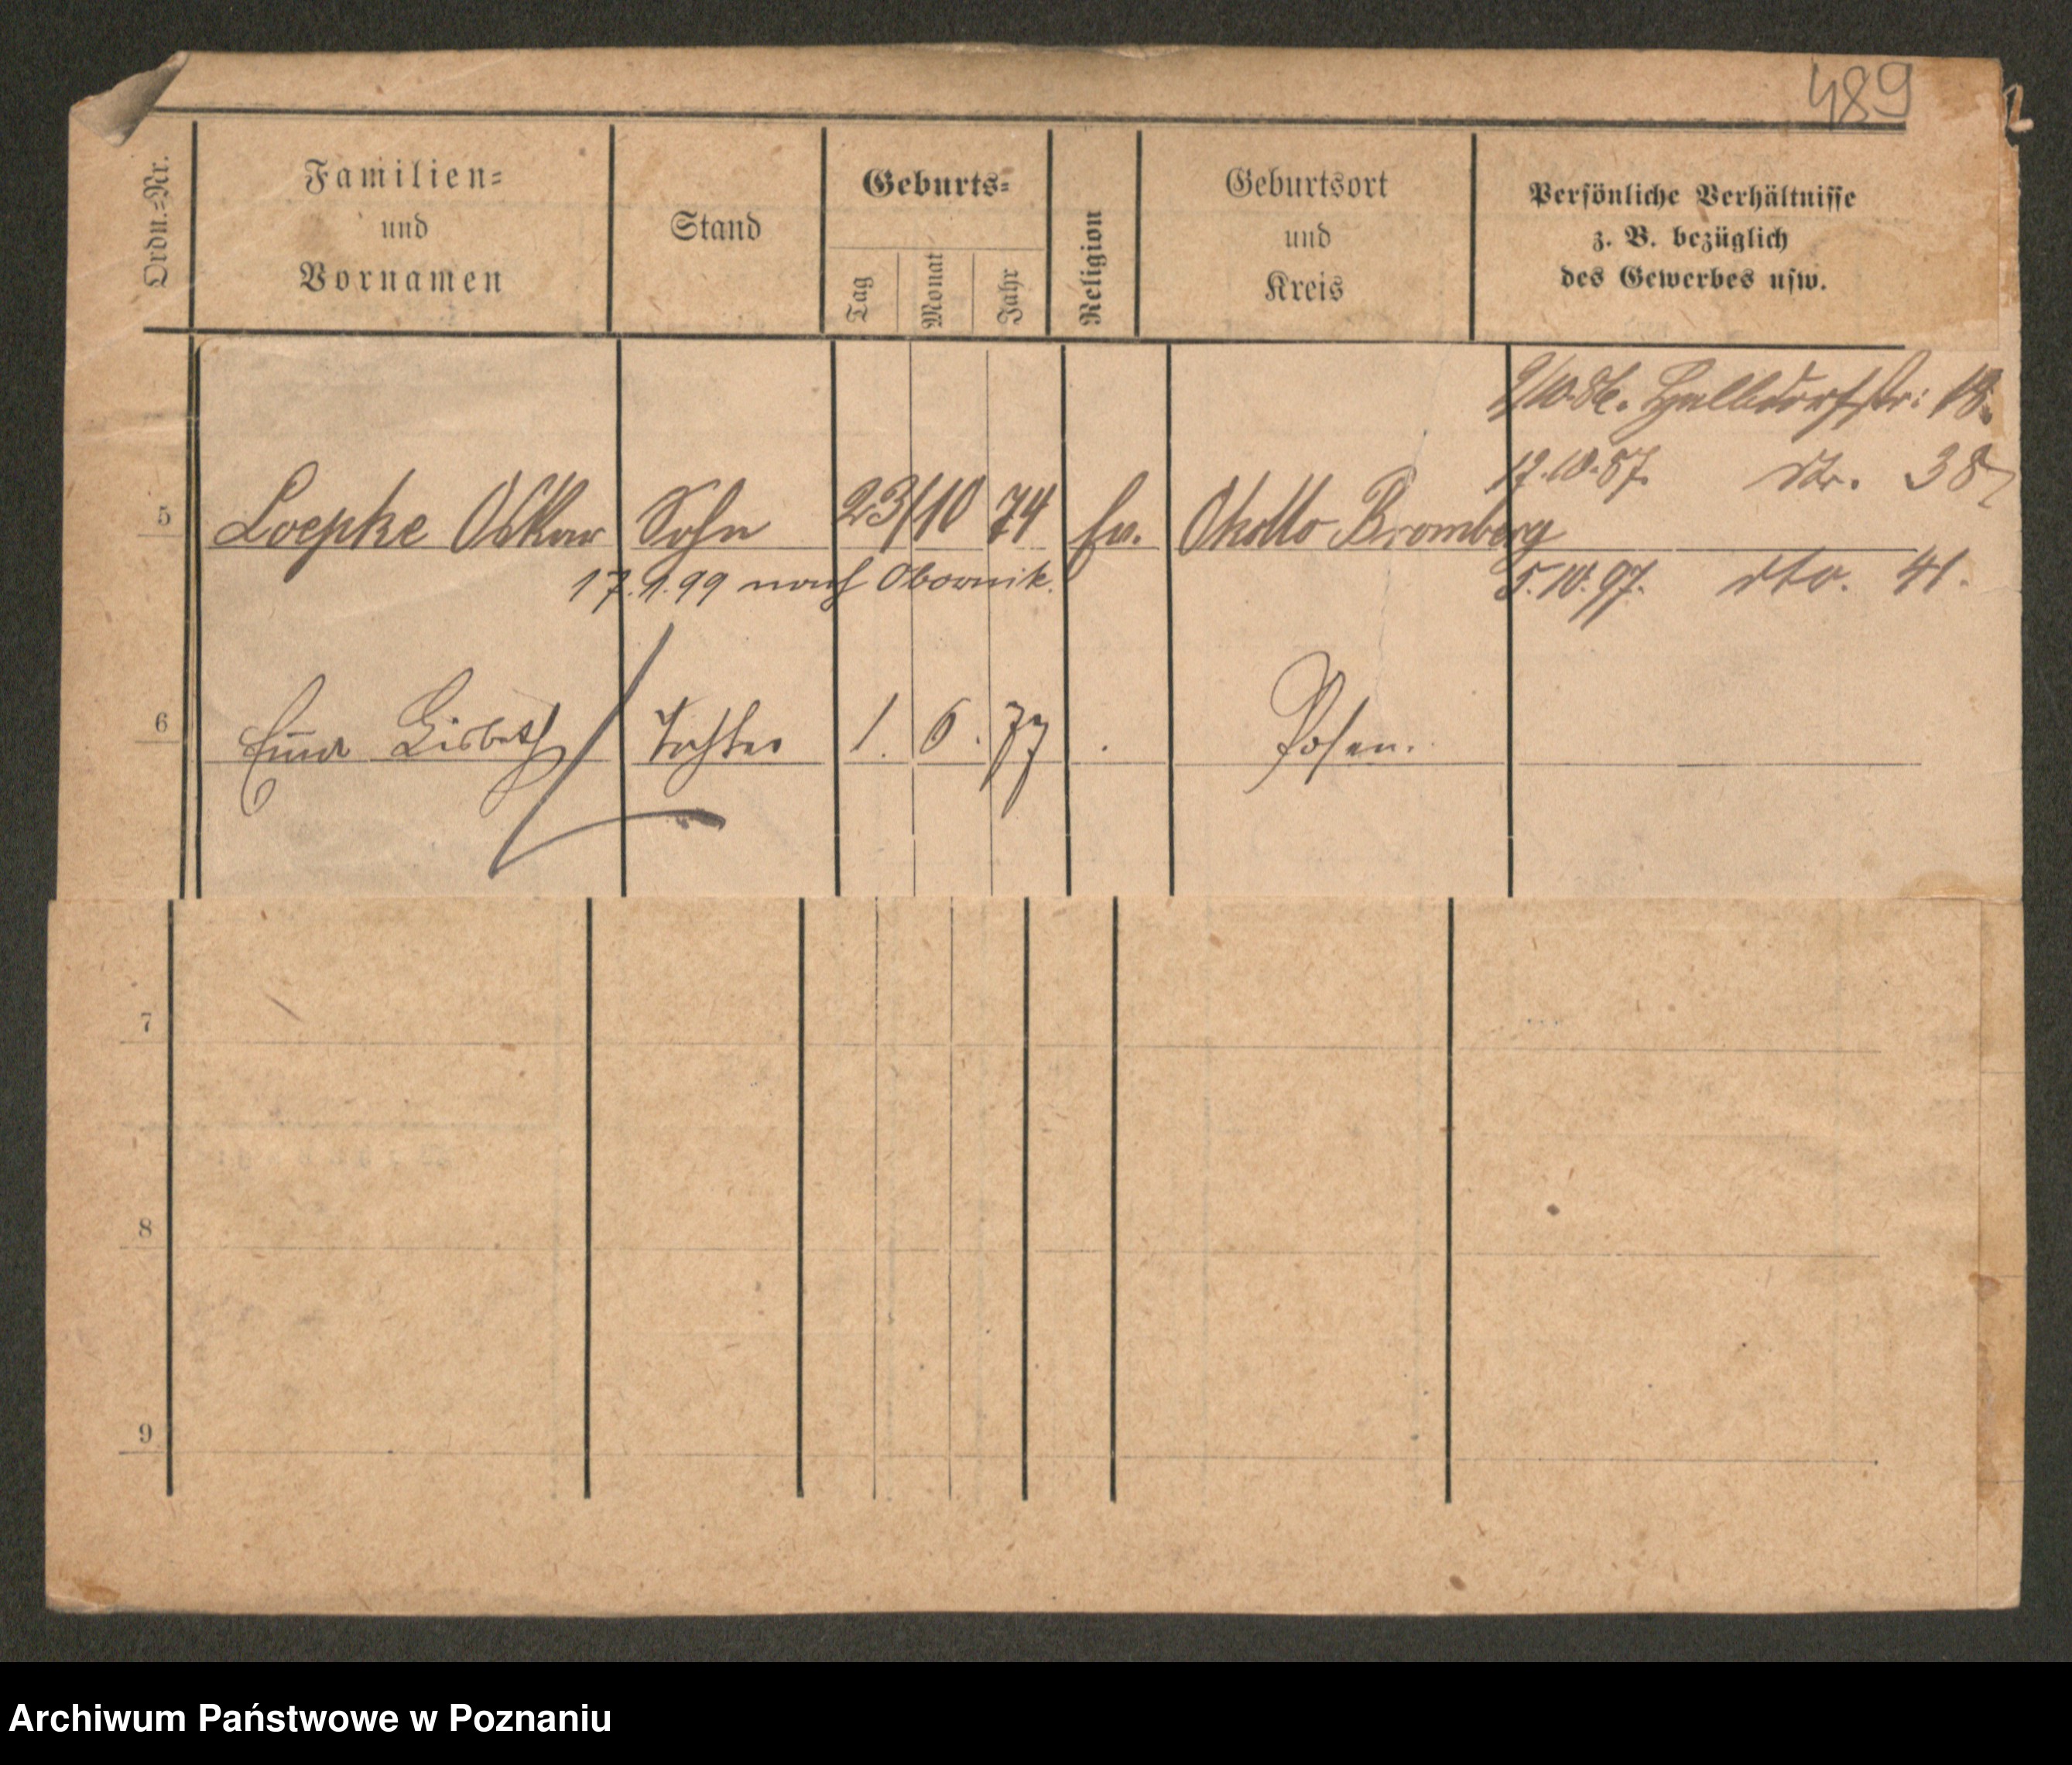 489
Ordn.=Nr.
Familien=
und
Vornamen
Stand
Geburts=
Tag
Monat
Jahr
Religion
Geburtsort
und
Kreis
Persönliche Verhältnisse
z. B. bezüglich
des Gewerbes usw.
Halbdorfstr: 18.
12.10.87. dto. 38
5 Loepke Oskar Sohn 23/10 74 Ev. Okollo Bromberg
17.1.99 nach Obornik. 5.10.97. dto. 41.
6 Emma Lisbeth Tochter 1. 6. 77 Posen.
7
8
9
Archiwum Państwowe w Poznaniu